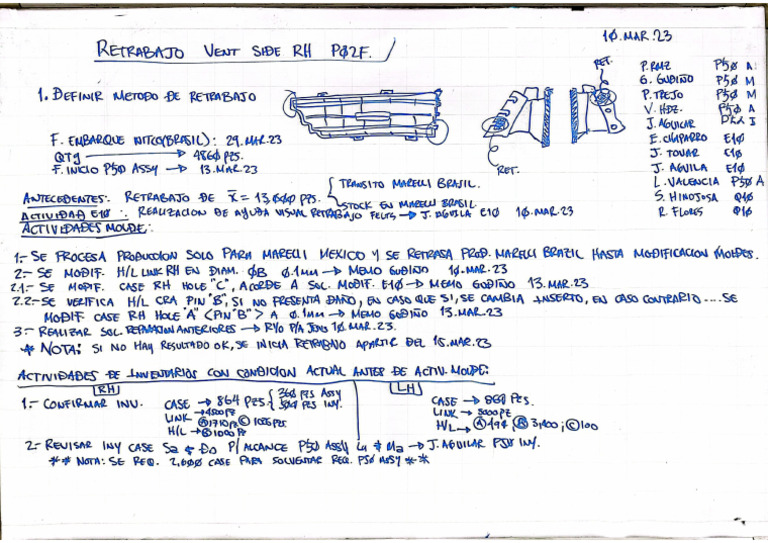 10.MAR.23
RETRABAJO VENT SIDE RH PØ2F.
RET.
P. RMZ P50 A
G. GUDIÑO P50 M
P. TREJO P50 M
V. HDZ. P50 A
J. AGUILAR I
E. CHAPARRO E10
J. TOVAR E10
J. AGUILA E10
L. VALENCIA P50 A
S. HINOJOSA Q10
R. FLORES Q10
1. DEFINIR METODO DE RETRABAJO
RET.
F. EMBARQUE NITCO(BRASIL): 29.MAR.23
QTY → 4860 PZS.
F. INICIO P50 ASSY → 13.MAR.23
ANTECEDENTES: RETRABAJO DE X̄ = 13,000 PZS.
TRANSITO MARELLI BRASIL.
STOCK EN MARELLI BRASIL.
ACTIVIDAD E10: REALIZACION DE AYUDA VISUAL RETRABAJO FELTS → J. AGUILA E10 10.MAR.23
ACTIVIDADES MOLDE:
1.- SE PROCESA PRODUCCION SOLO PARA MARELLI MEXICO Y SE RETRASA PROD. MARELLI BRAZIL HASTA MODIFICACION MOLDES.
2.- SE MODIF. H/L LINK RH EN DIAM. ØB 0.1mm → MEMO GUDIÑO 10.MAR.23
2.1.- SE MODIF. CASE RH HOLE "C", ACORDE A SOL. MODIF. E10 → MEMO GUDIÑO 13.MAR.23
2.2.- SE VERIFICA H/L CRA PIN "B", SI NO PRESENTA DAÑO, EN CASO QUE SI, SE CAMBIA INSERTO, EN CASO CONTRARIO .... SE
MODIF CASE RH HOLE "A" <PIN "B"> A 0.1mm → MEMO GUDIÑO 13.MAR.23
3.- REALIZAR SOL. REPARACION ANTERIORES → R10 P/A JUNS 10.MAR.23.
* NOTA: SI NO HAY RESULTADO OK, SE INICIA RETRABAJO APARTIR DEL 15.MAR.23
ACTIVIDADES DE INVENTARIOS CON CONDICION ACTUAL ANTES DE ACTIV. MOLDE:
RH
LH
1.- CONFIRMAR INV.
CASE → 864 PZS
360 PZS ASSY
504 PZS INY.
LINK → 1800 PZ
H/L → Ⓐ 1710 PZ Ⓒ 1005 PZS.
Ⓑ 1000 PZ
CASE → 864 PZS.
LINK → 5000 PZ
H/L → Ⓐ 494 Ⓑ 3,400 ; Ⓒ 100
2.- REVISAR INY CASE Sa & Do P/ ALCANCE P50 ASSY Lu & Ma → J. AGUILAR P50 INY.
** NOTA: SE REQ. 2,600 CASE PARA SOLVENTAR REQ. P50 ASSY **